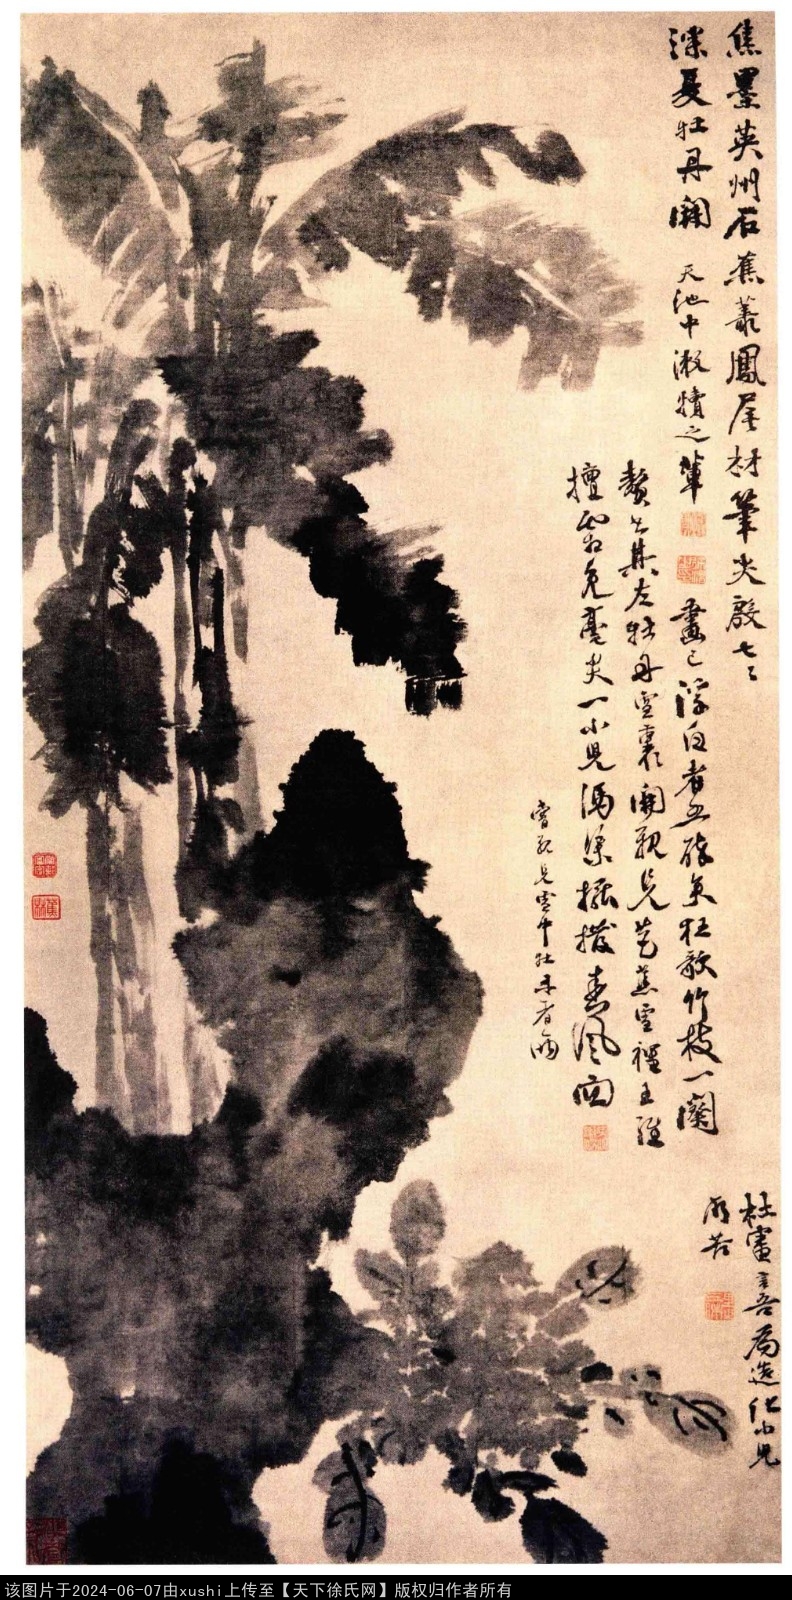 焦墨英州石蕉叢鳳尾材筆尖殷七七
深夏牡丹開
天池中漱犢之輩
畫已浮白者五醉矣狂歌竹枝一闋
贅書其左牡丹雪裏開親見芭蕉雪裡王維
擅霜兔毫尖一小兒馮渠擺撥春風面
嘗親見雪中牡丹者兩
杜審言吾為造化小兒
所苦
该图片于2024-06-07由xushi上传至【天下徐氏网】版权归作者所有